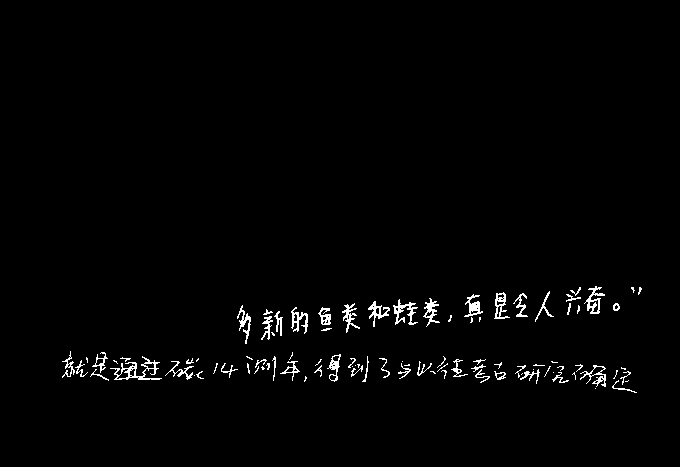 多新的鱼类和蛙类，真是令人兴奋。”
就是通过碳14测年，得到了与以往考古研究确定